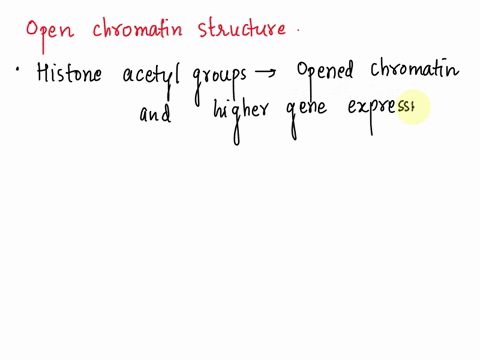 Open chromatin structure.
• Histone acetyl groups → Opened chromatin
and higher gene express